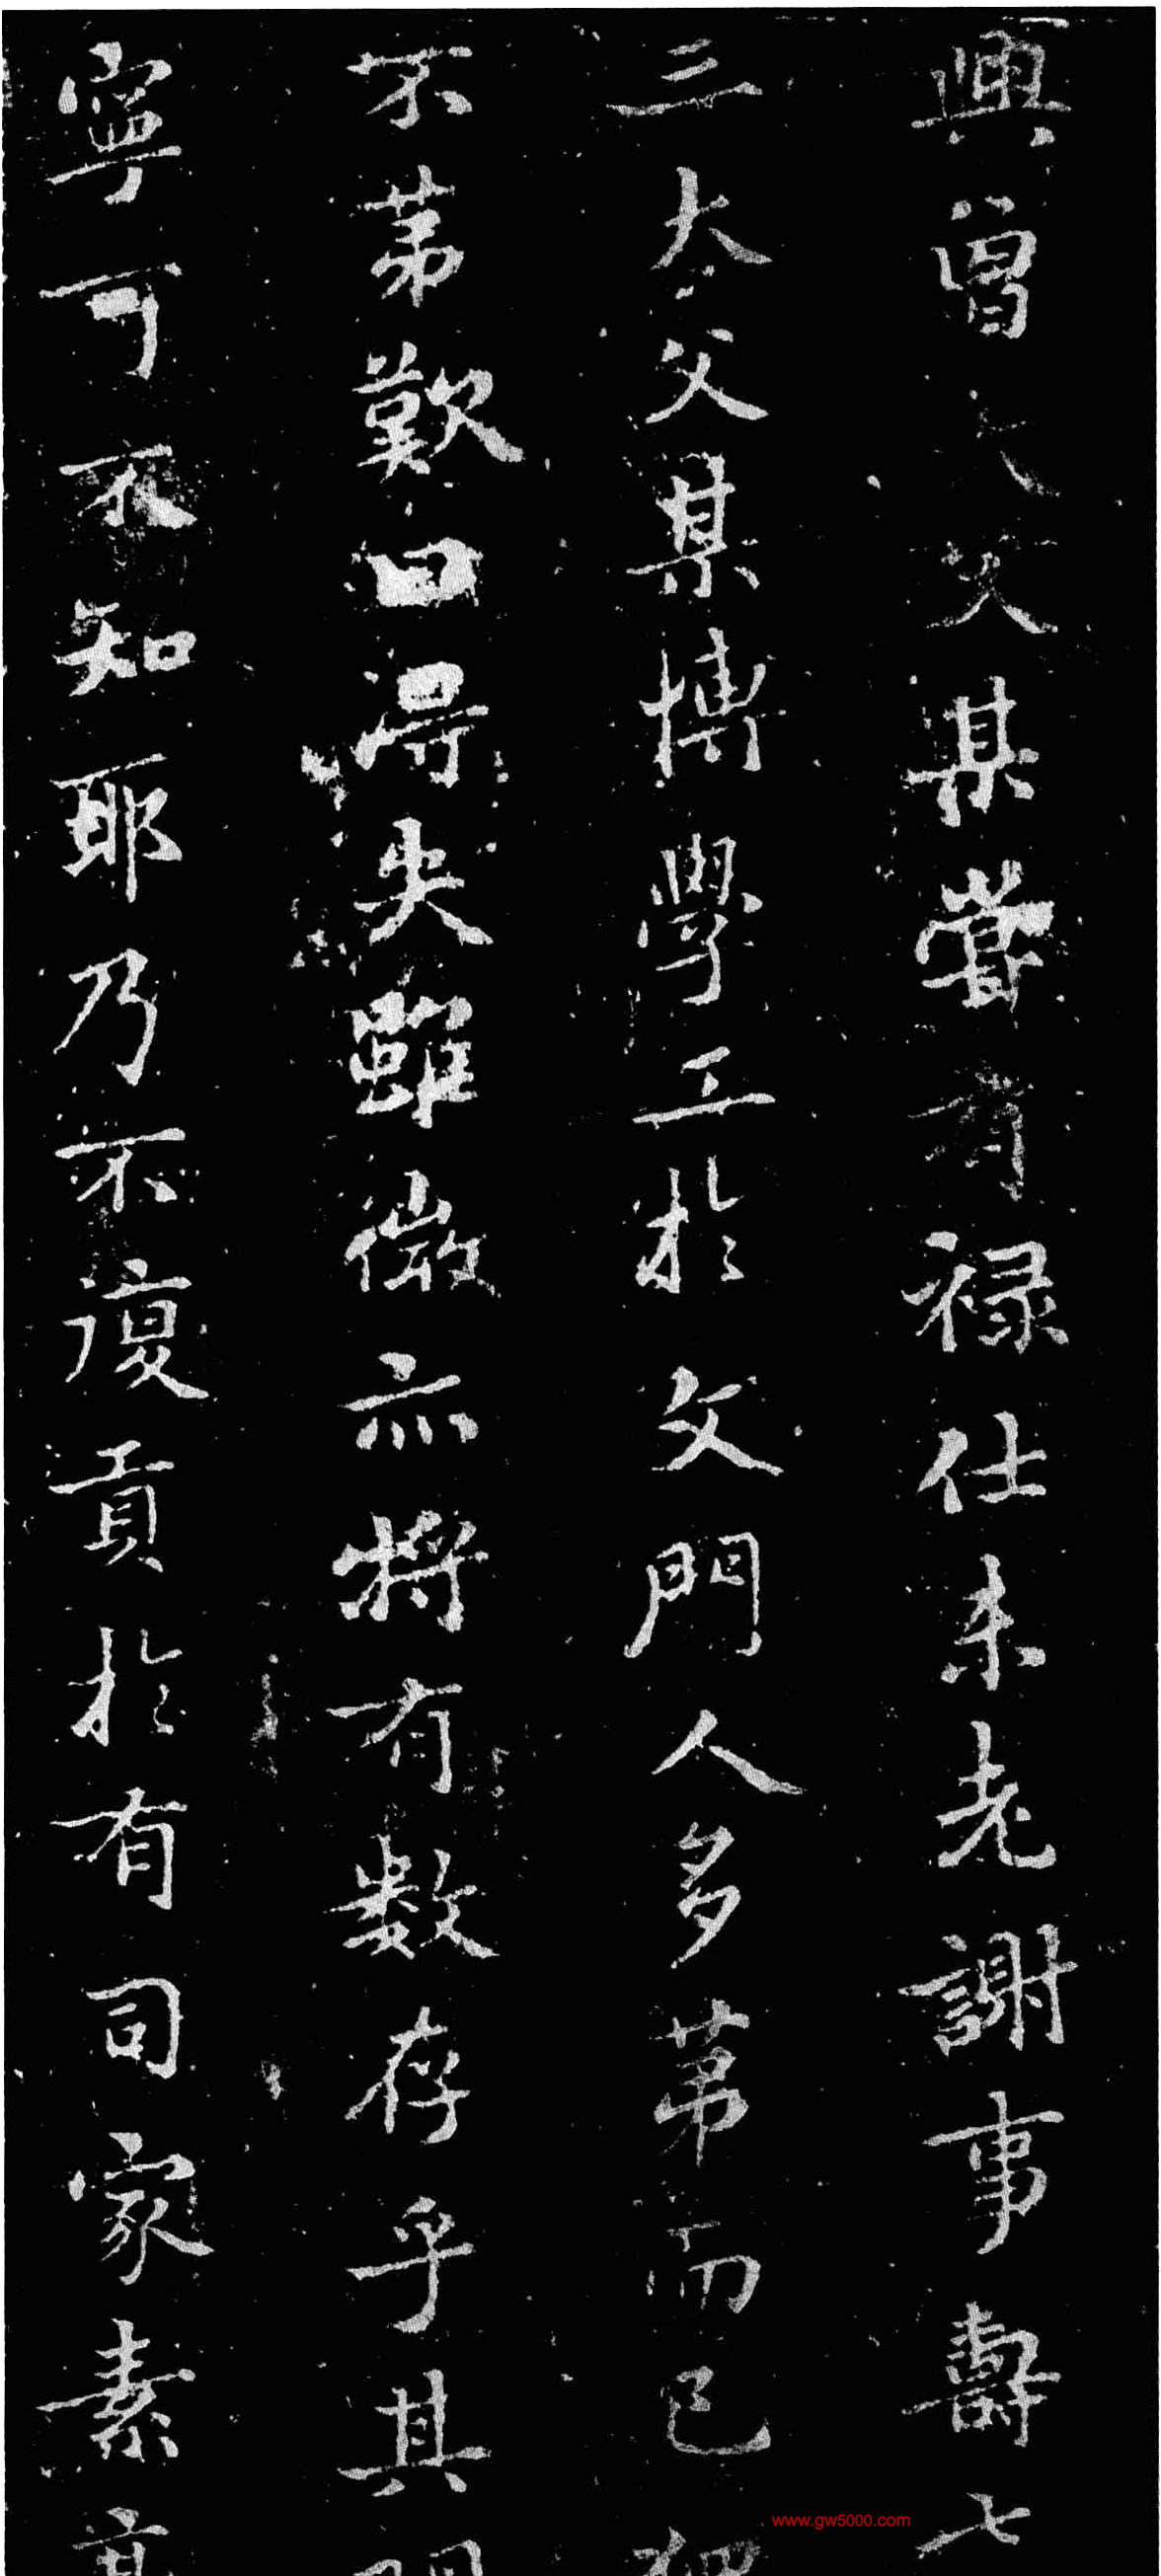 興曾大父某嘗有禄仕未老謝事壽七
三大父某博學工於文門人多苐而已
不苐歎曰得失雖微亦將有数存乎其
寧可不知耶乃不復貢於有司家素
www.gw5000.com